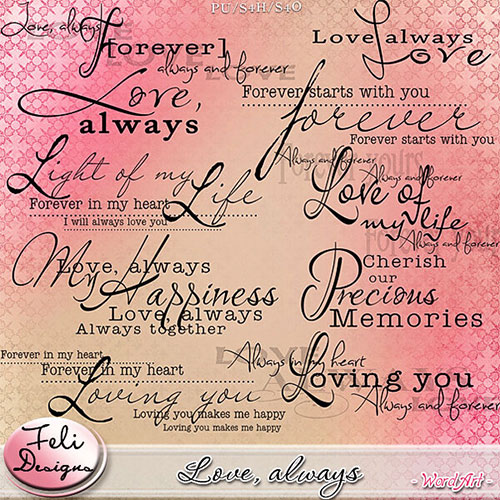 PU/S4H/S4O
Love, always
[forever]
LOVE
always and forever
Love, always
Love
Love,
always
Forever starts with you
forever
Forever starts with you
Forever yours
Always and forever
Always and forever
Light of my
Life
Forever in my heart
I will always love you
Love of
my life
Always and forever
My Happiness
Love, always
Love, always
Always together
Cherish
our
Precious
Memories
Forever in my heart
Forever in my heart
Loving you
Loving you makes me happy
Loving you makes me happy
Always in my heart
Loving you
Always and forever
Feli
Designs
Love, always
- WordArt -